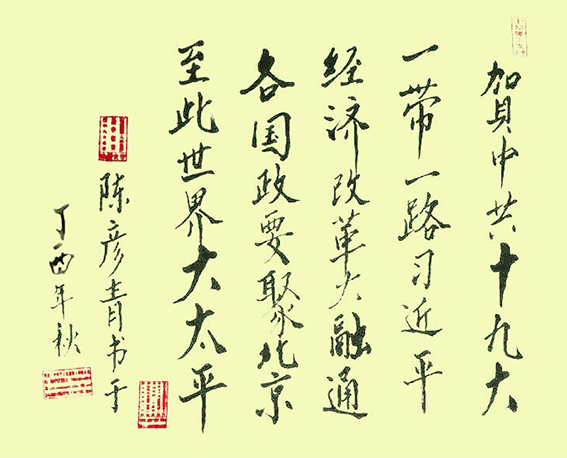 賀中共十九大
一带一路习近平
经济改革大融通
各国政要聚北京
至此世界大太平
陈彦青书于
丁酉年秋